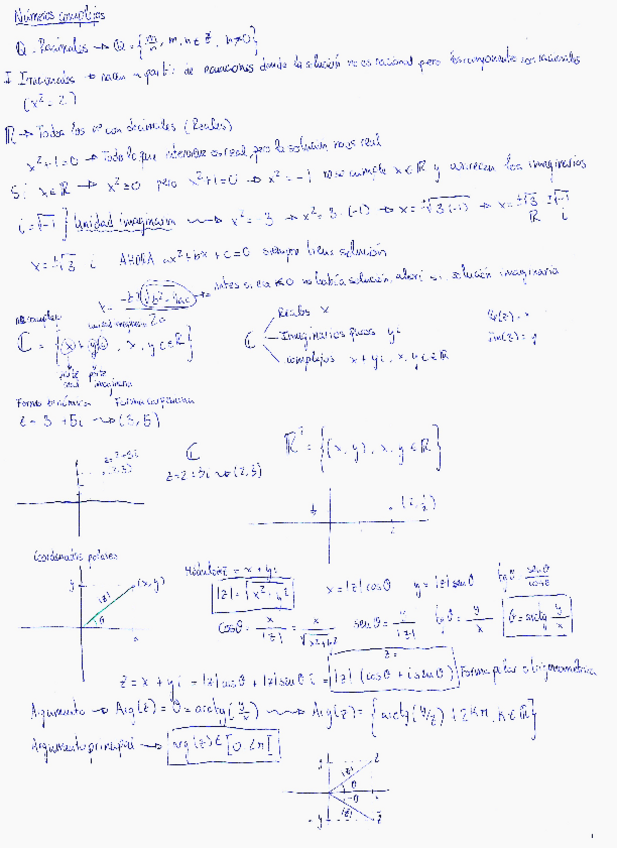 Números complejos
Q - Racionales → Q = {m/n, m, n ∈ Z, n≠0}
I Irracionales → nacen a partir de ecuaciones donde la solución no es racional pero los componentes son racionales
(x² = 2)
ℝ → Todos los nº con decimales (Reales)
x²+1=0 → Todo lo que interviene es real, pero la solución no es real
Si x∈ℝ → x²≥0 pero x²+1=0 → x²=-1 no se cumple x∈ℝ y aparecen los imaginarios
i=√-1] Unidad imaginaria ⟿ x²=-3 → x²=3·(-1) → x=±√3(-1) → x=±√3 ±√-1
ℝ i
x=±√3 i AHORA ax²+bx+c=0 siempre tiene solución
√b²-4ac → Antes si era <0 no había solución, ahora si, solución imaginaria
2a
nº complejos
unidad imaginaria
ℂ = {x + yi, x, y ∈ ℝ}
parte real
parte imaginaria
ℂ
Reales x
Imaginarios puros yi
complejos x + yi, x, y ∈ ℝ
Re(z) = x
Im(z) = y
Forma binómica
z = 3 + 5i ⟿ (3, 5)
ℝ² = {(x, y), x, y ∈ ℝ}
ℂ
Coordenadas polares
y
(x, y)
|z|
θ
x
Módulo z = x + yi
|z| = √x² + y²
x = |z| cosθ y = |z| senθ tg θ = senθ/cosθ
cosθ = x/|z| = x/√x²+y² senθ = y/|z| tg θ = y/x θ = arctg y/x
z = x + yi = |z| cosθ + |z| senθ i = |z| (cosθ + i senθ) Forma polar o trigonométrica
Argumento → Arg(z) = θ = arctg(y/x) ⟿ Arg(z) = {arctg(y/x) + 2kπ, k∈ℝ}
Argumento principal → arg(z) ∈ [0, 2π[
|z|
θ
-θ
-y
|z|